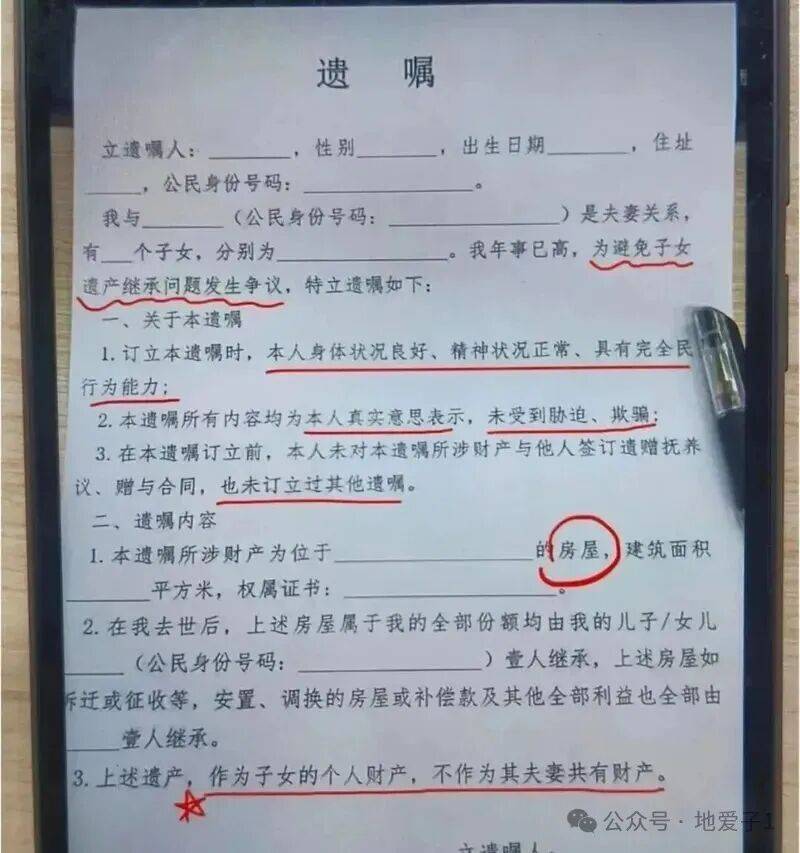 遗 嘱
立遗嘱人：________，性别________，出生日期________，住址
_____，公民身份号码：________________。
我与________（公民身份号码：________________）是夫妻关系，
有___个子女，分别为________________。我年事已高，为避免子女
遗产继承问题发生争议，特立遗嘱如下：
一、关于本遗嘱
1. 订立本遗嘱时，本人身体状况良好、精神状况正常、具有完全民
行为能力；
2. 本遗嘱所有内容均为本人真实意思表示，未受到胁迫、欺骗；
3. 在本遗嘱订立前，本人未对本遗嘱所涉财产与他人签订遗赠抚养
议、赠与合同，也未订立过其他遗嘱。
二、遗嘱内容
1. 本遗嘱所涉财产为位于__________________的房屋，建筑面积
________平方米，权属证书：____________________。
2. 在我去世后，上述房屋属于我的全部份额均由我的儿子/女儿
_____（公民身份号码：________________）壹人继承，上述房屋如
拆迁或征收等，安置、调换的房屋或补偿款及其他全部利益也全部由
_____壹人继承。
3. 上述遗产，作为子女的个人财产，不作为其夫妻共有财产。
立遗嘱人：
公众号·地爱子1